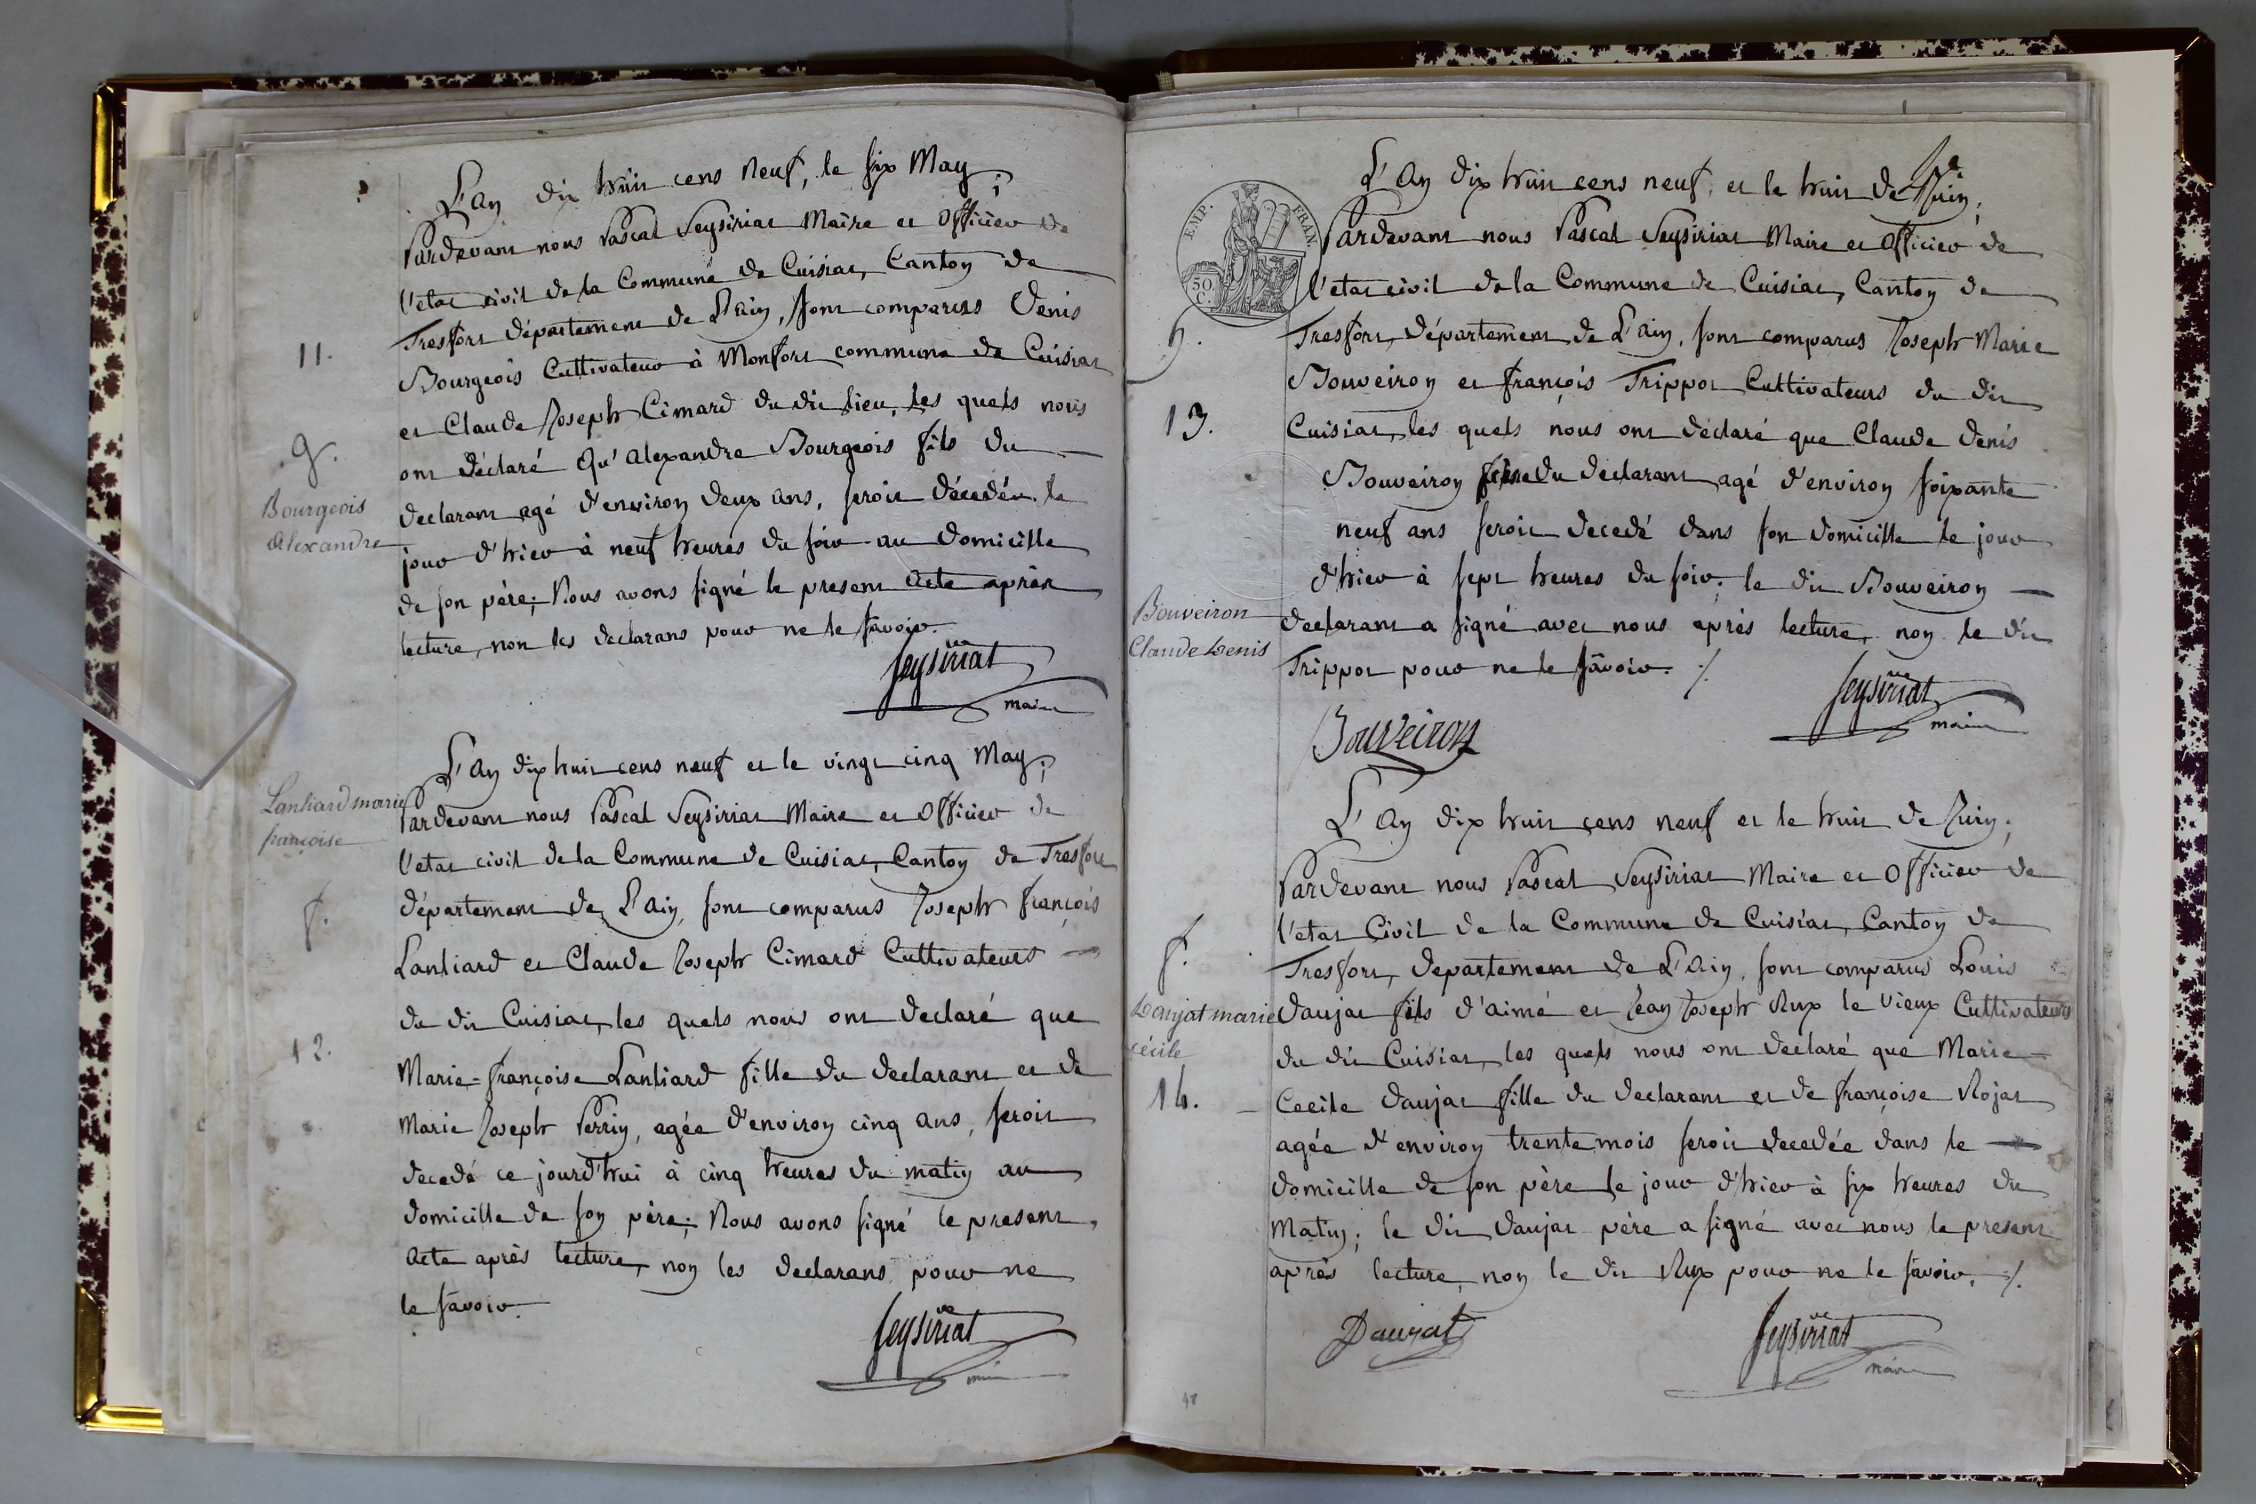 L'an dix huit cens neuf, le six May;
Pardevant nous Pascal Seysiriat Maire et officier de
l'etat civil de la Commune de Cuisiat, Canton de
Tresfort département de L'ain, sont comparus Denis
11.
Bourgeois Cultivateur à Monfort commune de Cuisiat
et Claude Joseph Cimard du dit lieu, les quels nous
g.
ont déclaré qu'alexandre Bourgeois fils du
Bourgeois
Alexandre
declarant agé d'environ deux ans, seroit décedé le
jour d'hier à neuf heures du soir au domicille
de son père; Nous avons signé le present acte après
lecture, non les declarans pour ne le savoir.
Seysiriat
maire
L'an dix huit cens neuf et le vingt cinq May;
Lanliard marie
françoise
Pardevant nous Pascal Seysiriat Maire et officier de
l'etat civil de la Commune de Cuisiat, Canton de Tresfort
département de L'ain, sont comparus Joseph françois
f.
Lanliard et Claude Joseph Cimard Cultivateurs
du dit Cuisiat, les quels nous ont declaré que
12.
Marie-françoise Lanliard fille du declarant et de
Marie Joseph Perrin, agée d'environ cinq ans, seroit
decedé ce jourd'hui à cinq heures du matin au
domicille de son père; Nous avons signé le present
acte après lecture, non les declarans pour ne
le savoir.
Seysiriat
maire
L'an dix huit cens neuf, et le huit de Juin;
EMP. FRAN.
50 C.
Pardevant nous Pascal Seysiriat Maire et officier de
l'etat civil de la Commune de Cuisiat, Canton de
Tresfort, département de L'ain, sont comparus Joseph Marie
Bouveiron et françois Trippot Cultivateurs du dit
13.
Cuisiat, les quels nous ont déclaré que Claude Denis
Bouveiron père du declarant agé d'environ soixante
neuf ans seroit decedé dans son domicille le jour
d'hier à sept heures du soir; le dit Bouveiron
Bouveiron
Claude Denis
declarant a signé avec nous après lecture, non le dit
Trippot pour ne le savoir. ./.
Seysiriat
maire
Bouveiron
L'an dix huit cens neuf et le huit de Juin;
Pardevant nous Pascal Seysiriat Maire et officier de
l'etat Civil de la Commune de Cuisiat, Canton de
f.
Tresfort, departement de L'ain, sont comparus Louis
Daujat marie
cécile
daujat fils d'aimé et Jean Joseph Rux le vieux Cultivateurs
du dit Cuisiat, les quels nous ont declaré que Marie
14.
Cecile daujat fille du declarant et de françoise Rojat
agée d'environ trente mois seroit decedée dans le
domicille de son père le jour d'hier à six heures du
Matin; le dit daujat père a signé avec nous le present
après lecture, non le dit Rux pour ne le savoir. ./.
Daujat
Seysiriat
maire
48